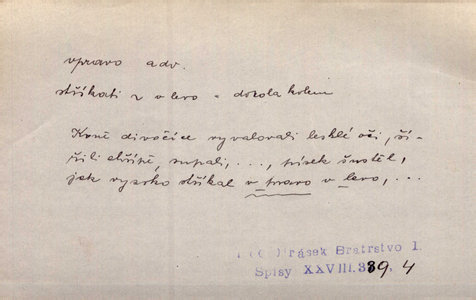 vpravo adv.
stříkati v. vlevo = dokola kolem
Koně divočíce vyvalovali lesklé oči, ší-
řili chřípě, supali, ..., písek šustěl,
jak vysoko stříkal v_pravo v_levo, ...
Jirásek Bratrstvo I.
Spisy XXVIII. 339, 4